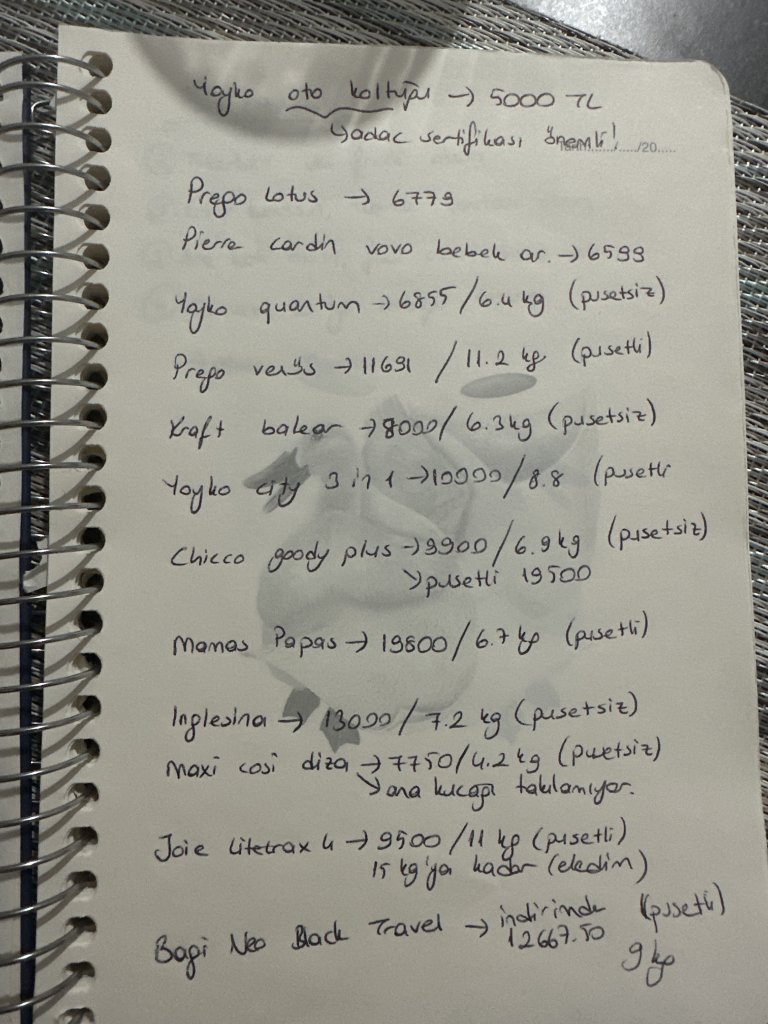 Yoyko oto koltuğu → 5000 TL
↳ adac sertifikası önemli!
/20
Prego Lotus → 6779
Pierre cardin vovo bebek ar. → 6599
Yoyko quantum → 6855/6.4 kg (pusetsiz)
Prego verüs → 11691 / 11.2 kg (pusetli)
Kraft balear → 8000/ 6.3kg (pusetsiz)
Yoyko city 3 in 1 → 10000/8.8 (pusetli
Chicco goody plus → 9900/6.9kg (pusetsiz)
↘ pusetli 19500
Mamas Papas → 19800/6.7 kg (pusetli)
Inglesina → 13000/7.2 kg (pusetsiz)
Maxi cosi diza → 7750/4.2 kg (pusetsiz)
↘ ana kucağı takılamıyor.
Joie Litetrax 4 → 9500/11 kg (pusetli)
15 kg'ya kadar (eledim)
Bagi Neo Black Travel → indirimde (pusetli)
12667.50
9 kg